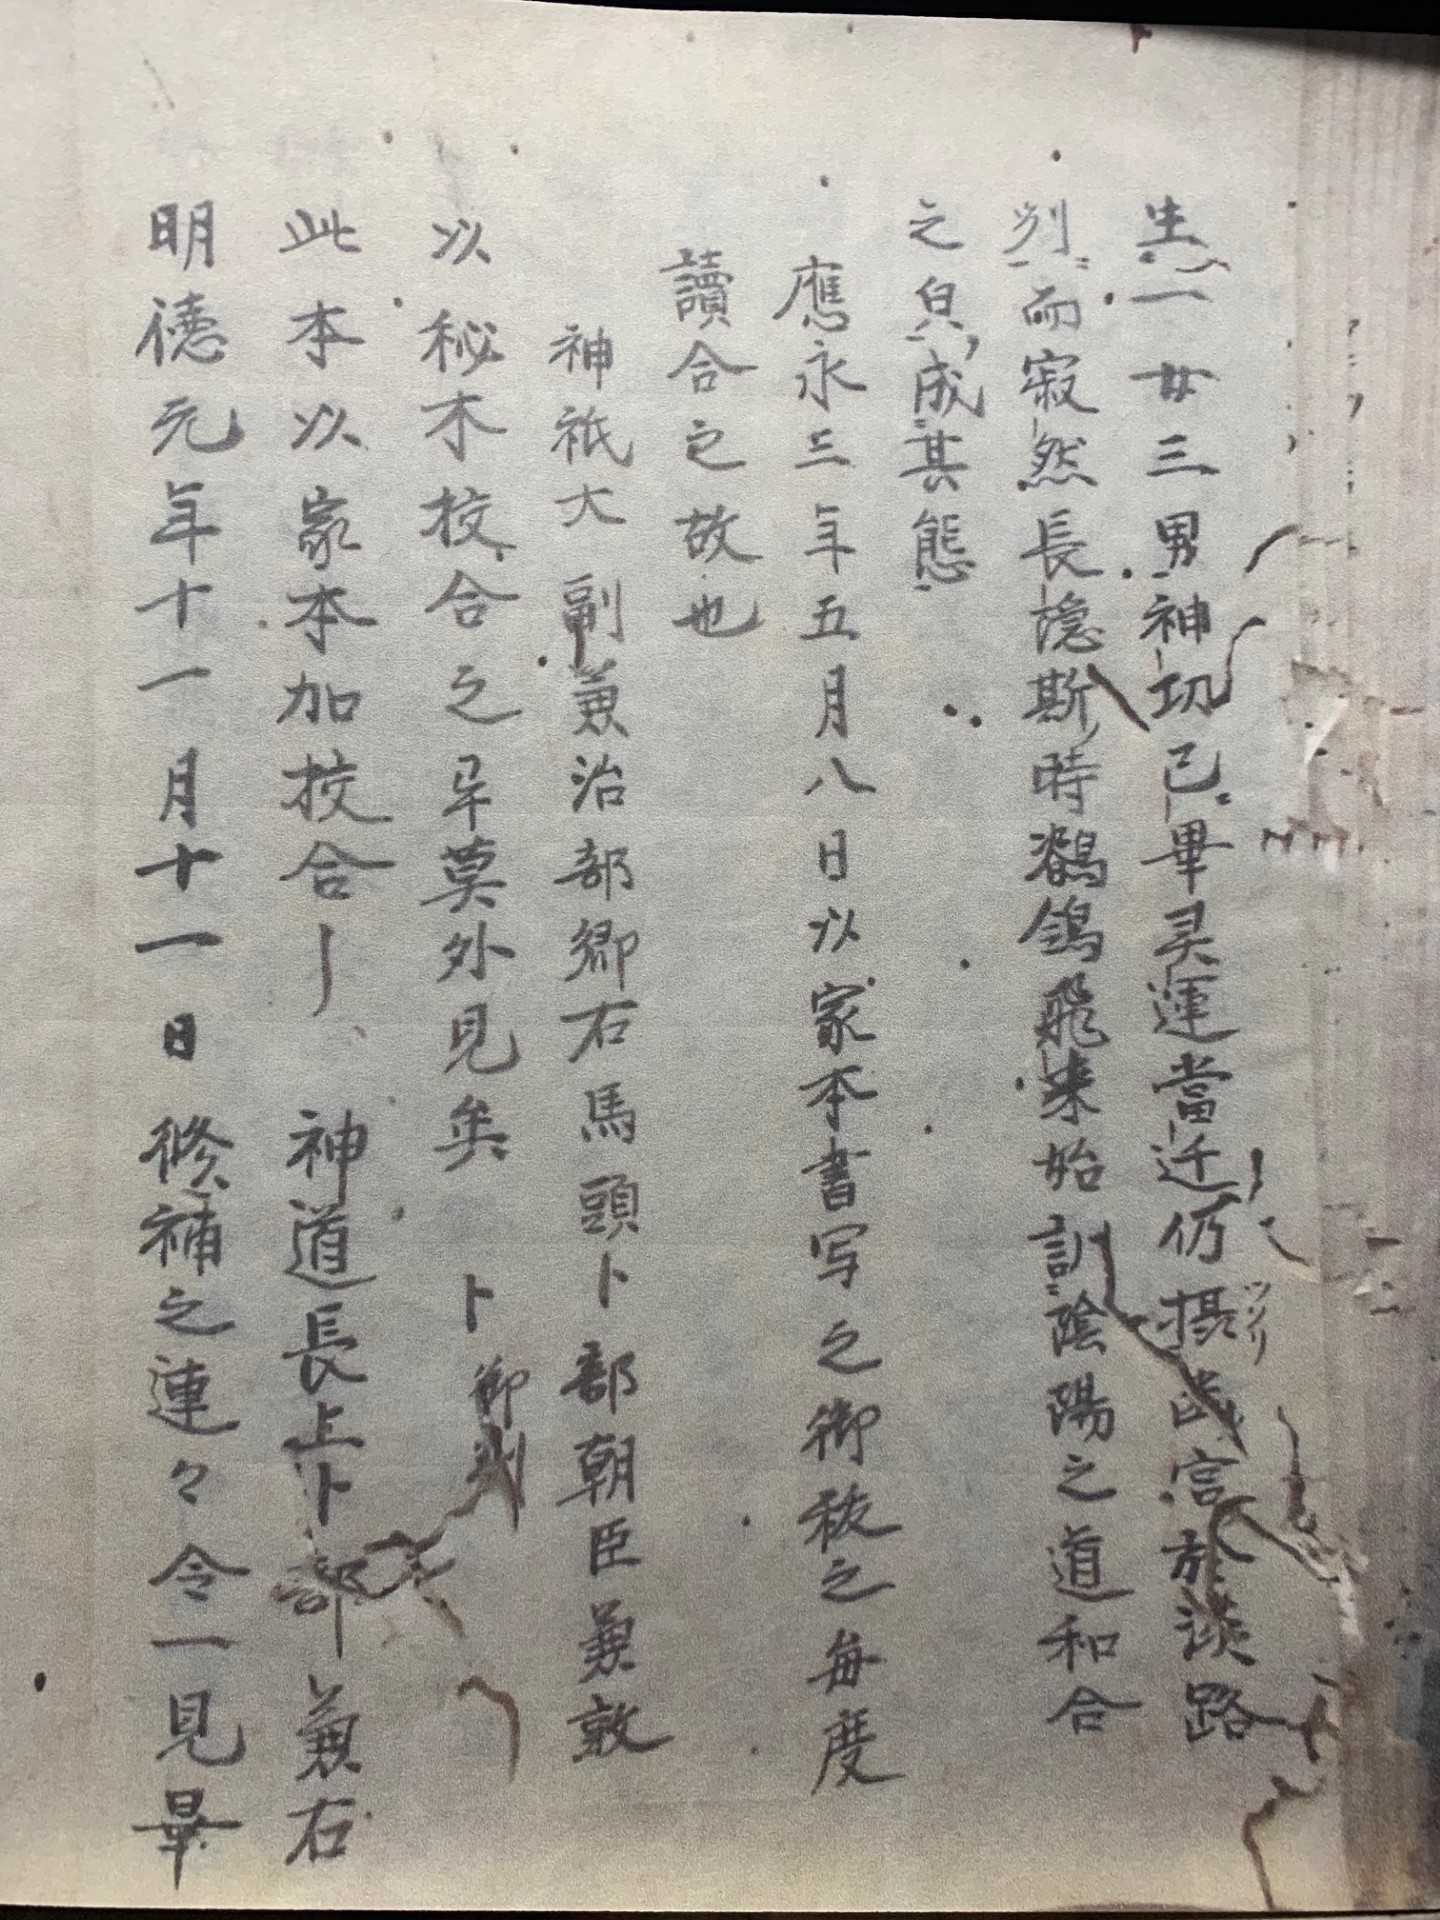 生一女三男神功已畢灵運當迁仍摂幽宮於淡路
ツクリ
列而寂然長隠斯時鶺鴒飛来始訓陰陽之道和合
之皃成其態
應永三年五月八日以家本書写之御秡之毎度
讀合之故也
神祇大副兼治部卿右馬頭卜部朝臣兼敦
以秘本校合之早莫外見矣 卜御判
此本以家本加挍合 神道長上卜部 兼右
明徳元年十一月十一日 修補之連々令一見畢